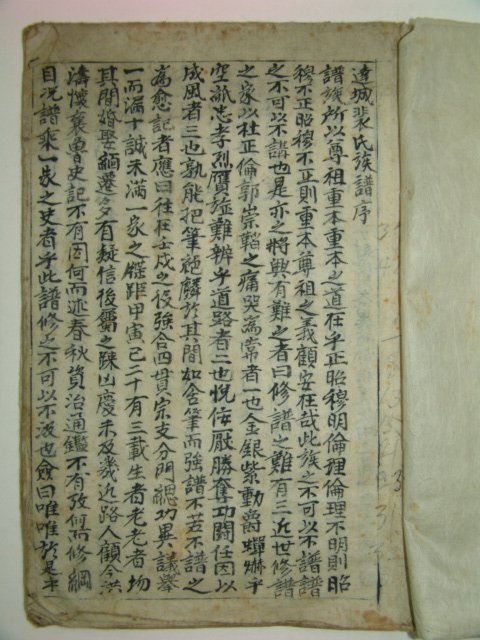 達城裴氏族譜序
譜族所以尊祖重本重本之道在乎正昭穆明倫理倫理不明則昭
穆不正昭穆不正則重本尊祖之義顧安在哉此族之不可以不譜譜
之不可以不講也是亦之將興有難之者曰修譜之難有三近世修譜
之家以杜正倫郭崇韜之痛哭為常者一也金銀紫動爵蟬聯乎
空誥忠孝烈贋旌難辨乎道路者二也悅侫厭勝奪功鬪任因以
成風者三也孰能把筆絶麟於其間如含筆而強譜不若不譜之
為愈記者應曰往在壬戌之役強合四貫宗支分門聽功異議擧
一而漏十誠未滿一家之傑距甲寅已二十有三載生者老老者
其間婚娶緬遷多有疑信後屬之踈凶慶未及幾近路人顧今洪
濤懷襄魯史記不有因何而述春秋資治通鑑不有攷何而修綱
目况譜乘一家之史者乎此譜修之不可以不汲也僉曰唯唯於是乎